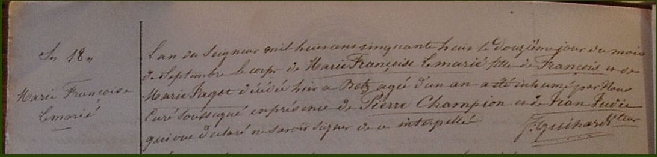 Sn 18
Marie Françoise
Lemarié
L'an du Seigneur mil huit cent cinquante neuf le Douzième jour du mois
de Septembre le corps de Marie Françoise Lemarié fille de François et de
Marie Paget décédée hier à Betz agée d'un an a été inhumé par Nous
Curé soussigné en présence de Pierre Champion et de Jean
qui ont déclaré ne savoir signer de ce interpellé
Guihard